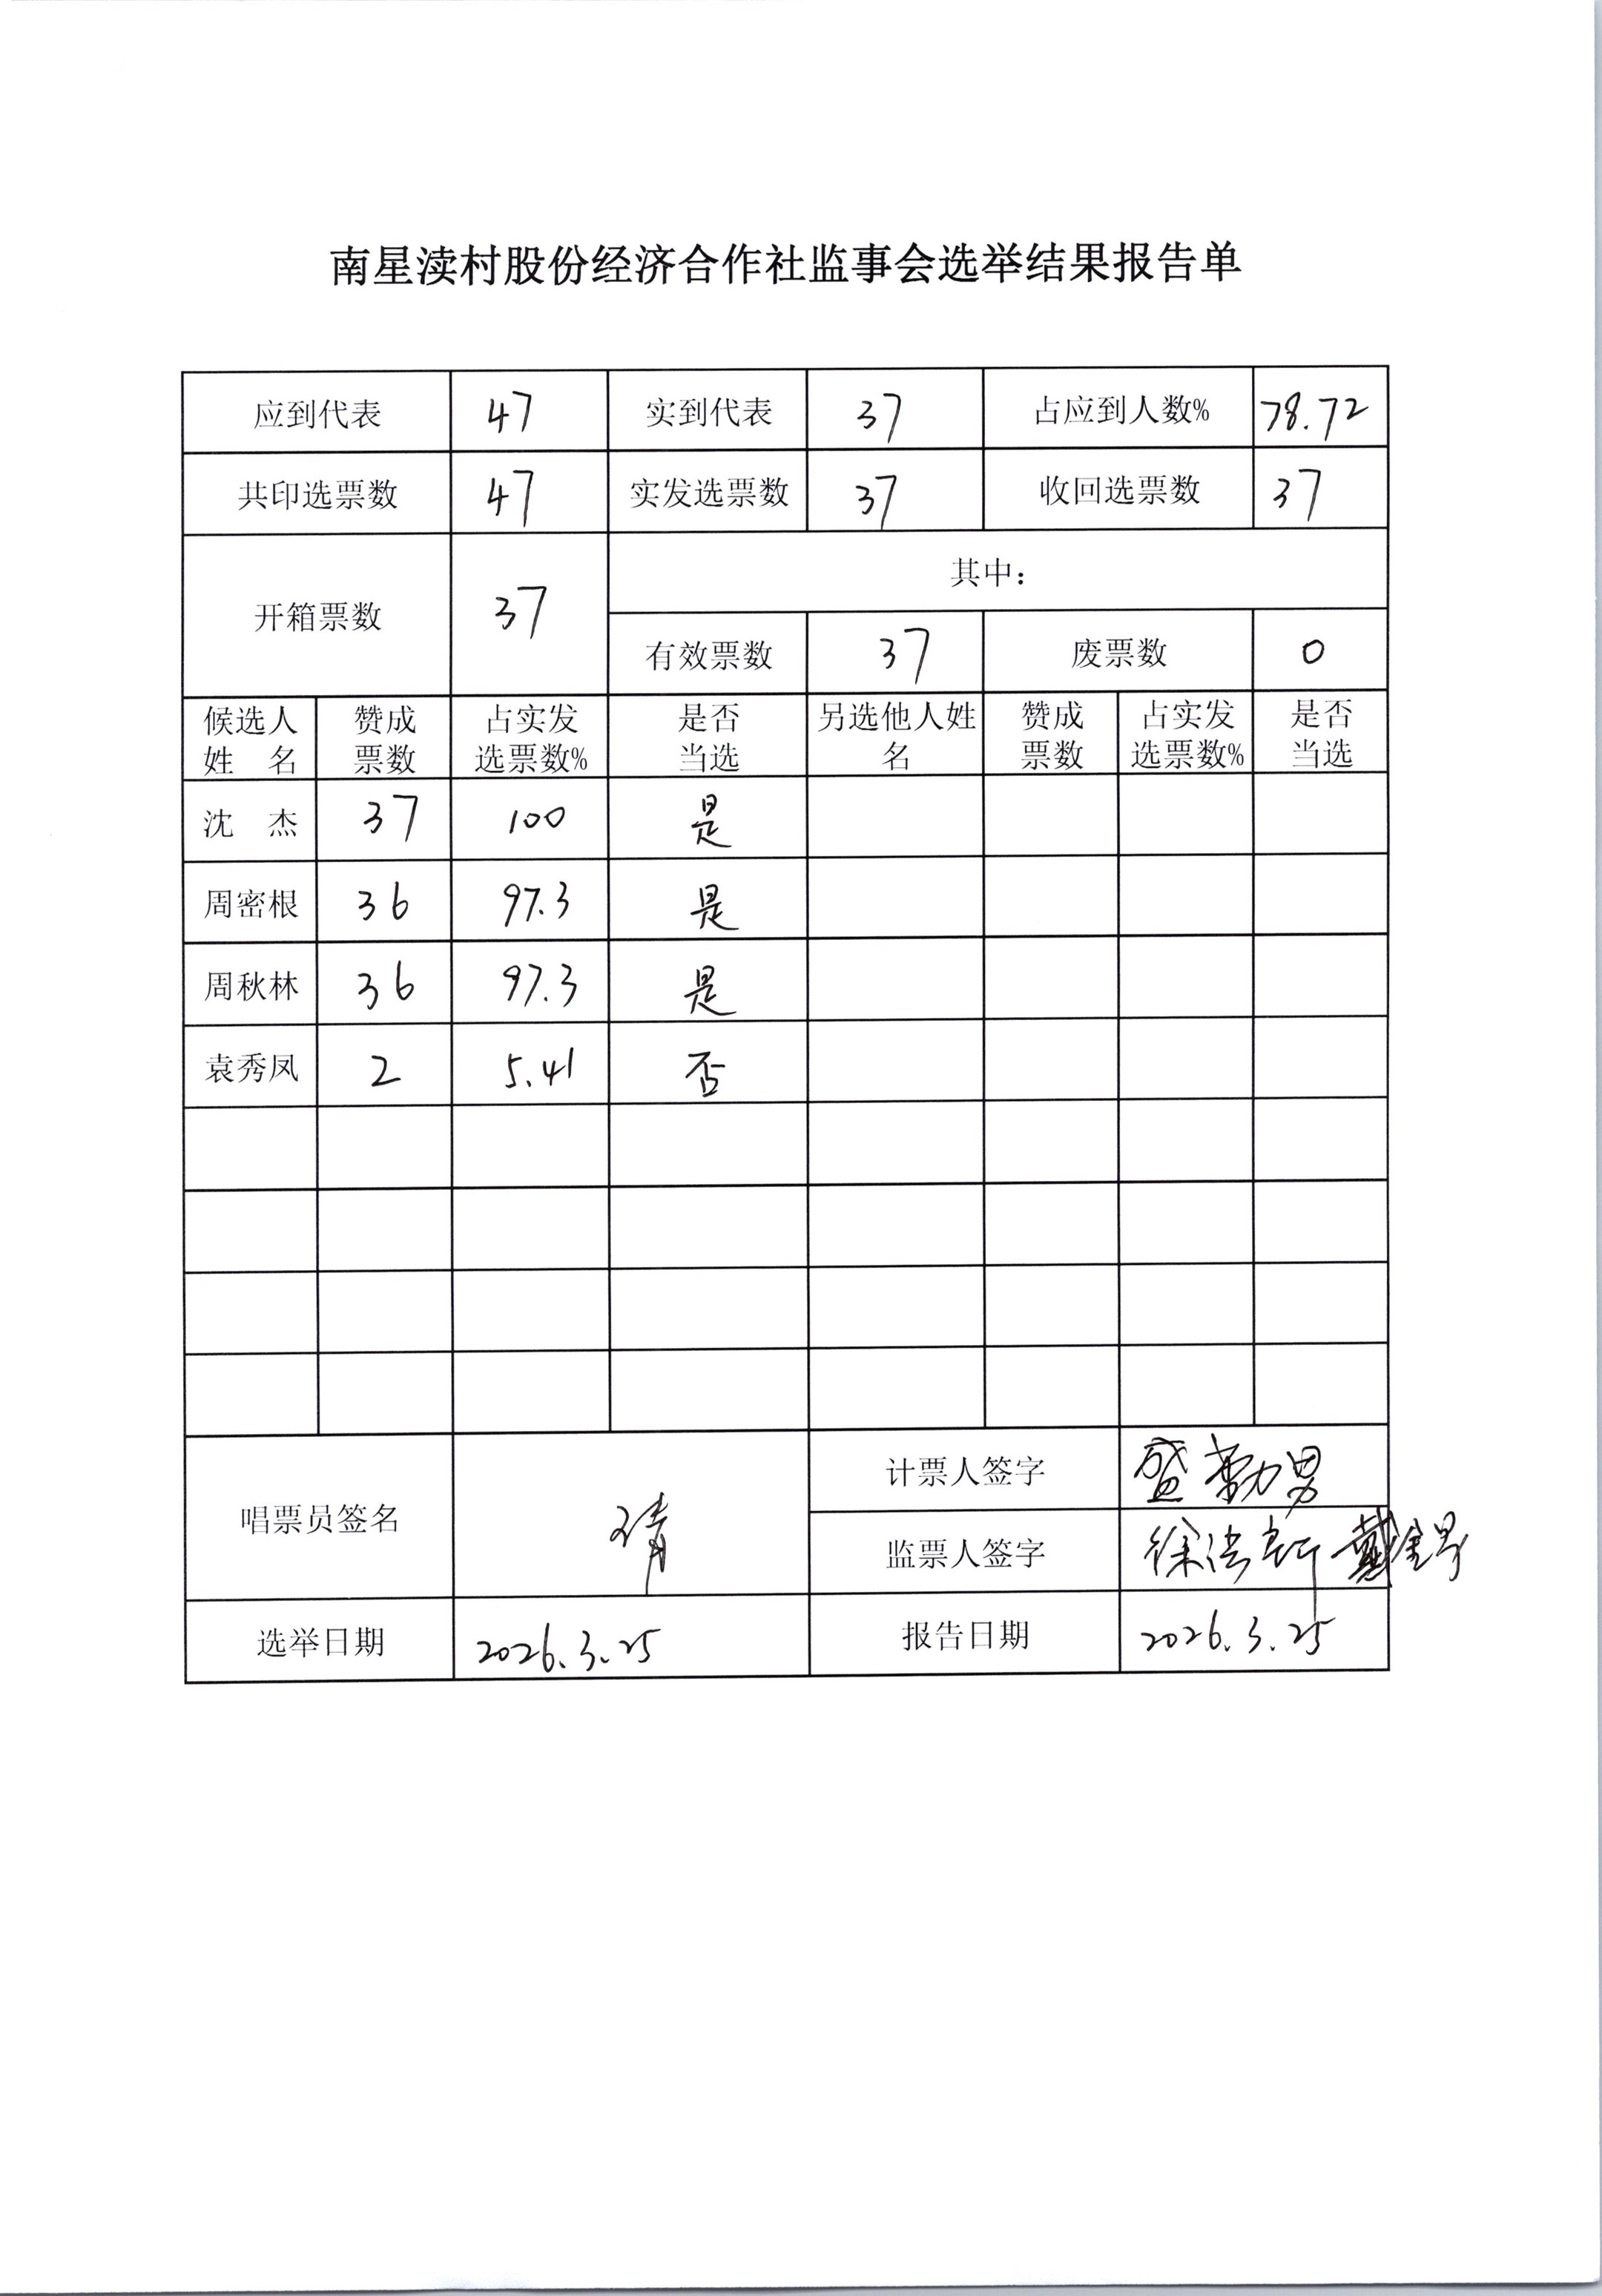 南星渎村股份经济合作社监事会选举结果报告单
应到代表 47 实到代表 37 占应到人数% 78.72
共印选票数 47 实发选票数 37 收回选票数 37
开箱票数 37 其中：
有效票数 37 废票数 0
候选人姓 名 赞成票数 占实发选票数% 是否当选 另选他人姓名 赞成票数 占实发选票数% 是否当选
沈 杰 37 100 是
周密根 36 97.3 是
周秋林 36 97.3 是
袁秀凤 2 5.41 否
唱票员签名
计票人签字 盛勤男
监票人签字 徐浩 戴
选举日期 2026.3.25 报告日期 2026.3.25